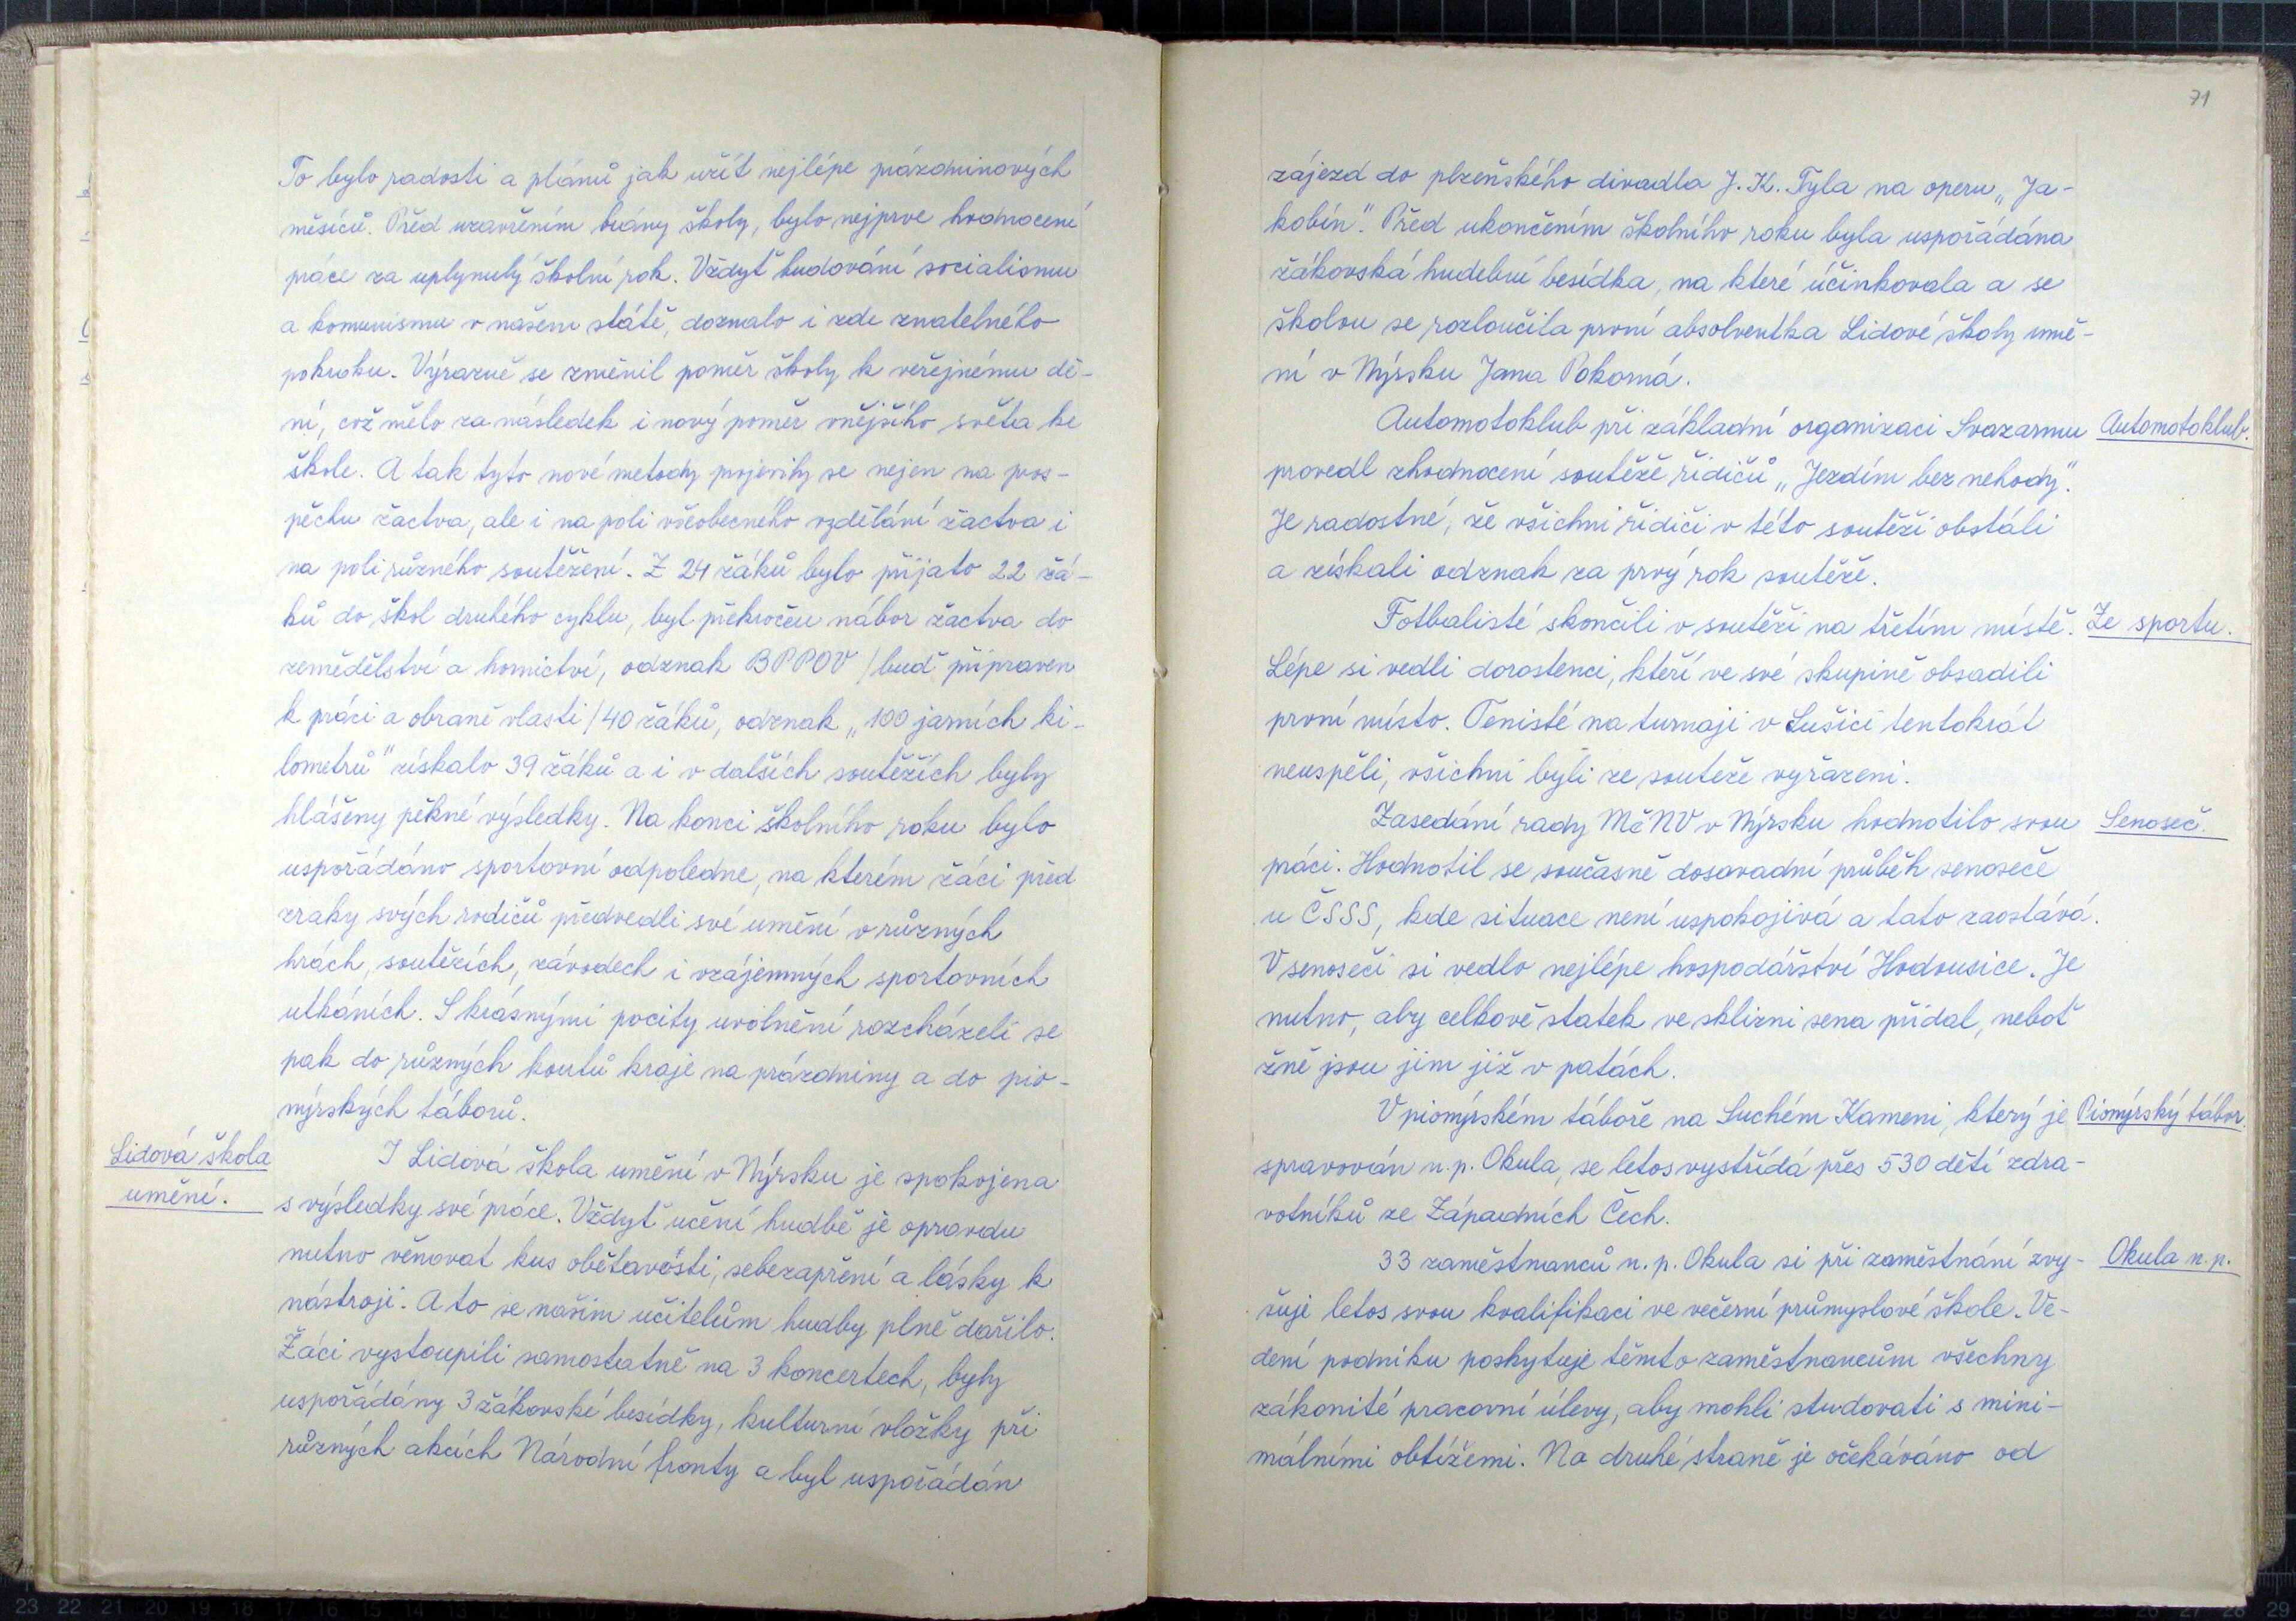 To bylo radosti a plánů jak užít nejlépe prázdninových
měsíců. Před uzavřením brány školy, bylo nejprve hodnocení
práce za uplynulý školní rok. Vždyť budování socialismu
a komunismu v našem státě, doznalo i zde znatelného
pokroku. Výrazně se změnil poměr školy k veřejnému dě-
ní, což mělo za následek i nový poměr vnějšího světa ke
škole. A tak tyto nové metody projevily se nejen na pros-
pěchu žactva, ale i na poli všeobecného vzdělání žactva i
na poli různého soutěžení. Z 24 žáků bylo přijato 22 žá-
ků do škol druhého cyklu, byl překročen nábor žactva do
zemědělství a hornictví, odznak BPPOV /buď připraven
k práci a obraně vlasti/ 40 žáků, odznak „100 jarních ki-
lometrů" získalo 39 žáků a i v dalších soutěžích byly
hlášeny pěkné výsledky. Na konci školního roku bylo
uspořádáno sportovní odpoledne, na kterém žáci před
zraky svých rodičů předvedli své umění v různých
hrách, soutěžích, závodech i vzájemných sportovních
utkáních. S krásnými pocity uvolnění rozcházeli se
pak do různých koutů kraje na prázdniny a do pio-
nýrských táborů.
Lidová škola
umění.
I Lidová škola umění v Nýrsku je spokojena
s výsledky své práce. Vždyť učení hudbě je opravdu
nutno věnovat kus obětavosti, sebezapření a lásky k
nástroji. A to se našim učitelům hudby plně dařilo.
Žáci vystoupili samostatně na 3 koncertech, byly
uspořádány 3 žákovské besídky, kulturní vložky při
různých akcích Národní fronty a byl uspořádán
71
zájezd do plzeňského divadla J. K. Tyla na operu „Ja-
kobín". Před ukončením školního roku byla uspořádána
žákovská hudební besídka, na které účinkovala a se
školou se rozloučila první absolventka Lidové školy umě-
ní v Nýrsku Jana Pokorná.
Automotoklub při základní organizaci Svazarmu
Automotoklub.
provedl zhodnocení soutěže řidičů „Jezdím bez nehody".
Je radostné, že všichni řidiči v této soutěži obstáli
a získali odznak za prvý rok soutěže.
Fotbalisté skončili v soutěži na třetím místě.
Ze sportu.
Lépe si vedli dorostenci, kteří ve své skupině obsadili
první místo. Tenisté na turnaji v Sušici tentokrát
neuspěli, všichni byli ze souteže vyřazeni.
Zasedání rady MěNV v Nýrsku hodnotilo svou
Senoseč.
práci. Hodnotil se současně dosavadní průběh senoseče
u ČSSS, kde situace není uspokojivá a tato zaostává.
V senoseči si vedlo nejlépe hospodářství Hodousice. Je
nutno, aby celkově statek ve sklizni sena přidal, neboť
žně jsou jim již v patách.
V pionýrském táboře na Suchém Kameni, který je
Pionýrský tábor.
spravován n. p. Okula, se letos vystřídá přes 530 dětí zdra-
votníků ze Západních Čech.
33 zaměstnanců n. p. Okula si při zaměstnání zvy-
Okula n. p.
šuje letos svou kvalifikaci ve večerní průmyslové škole. Ve-
dení podniku poskytuje těmto zaměstnancům všechny
zákonité pracovní úlevy, aby mohli studovati s mini-
málními obtížemi. Na druhé straně je očekáváno od